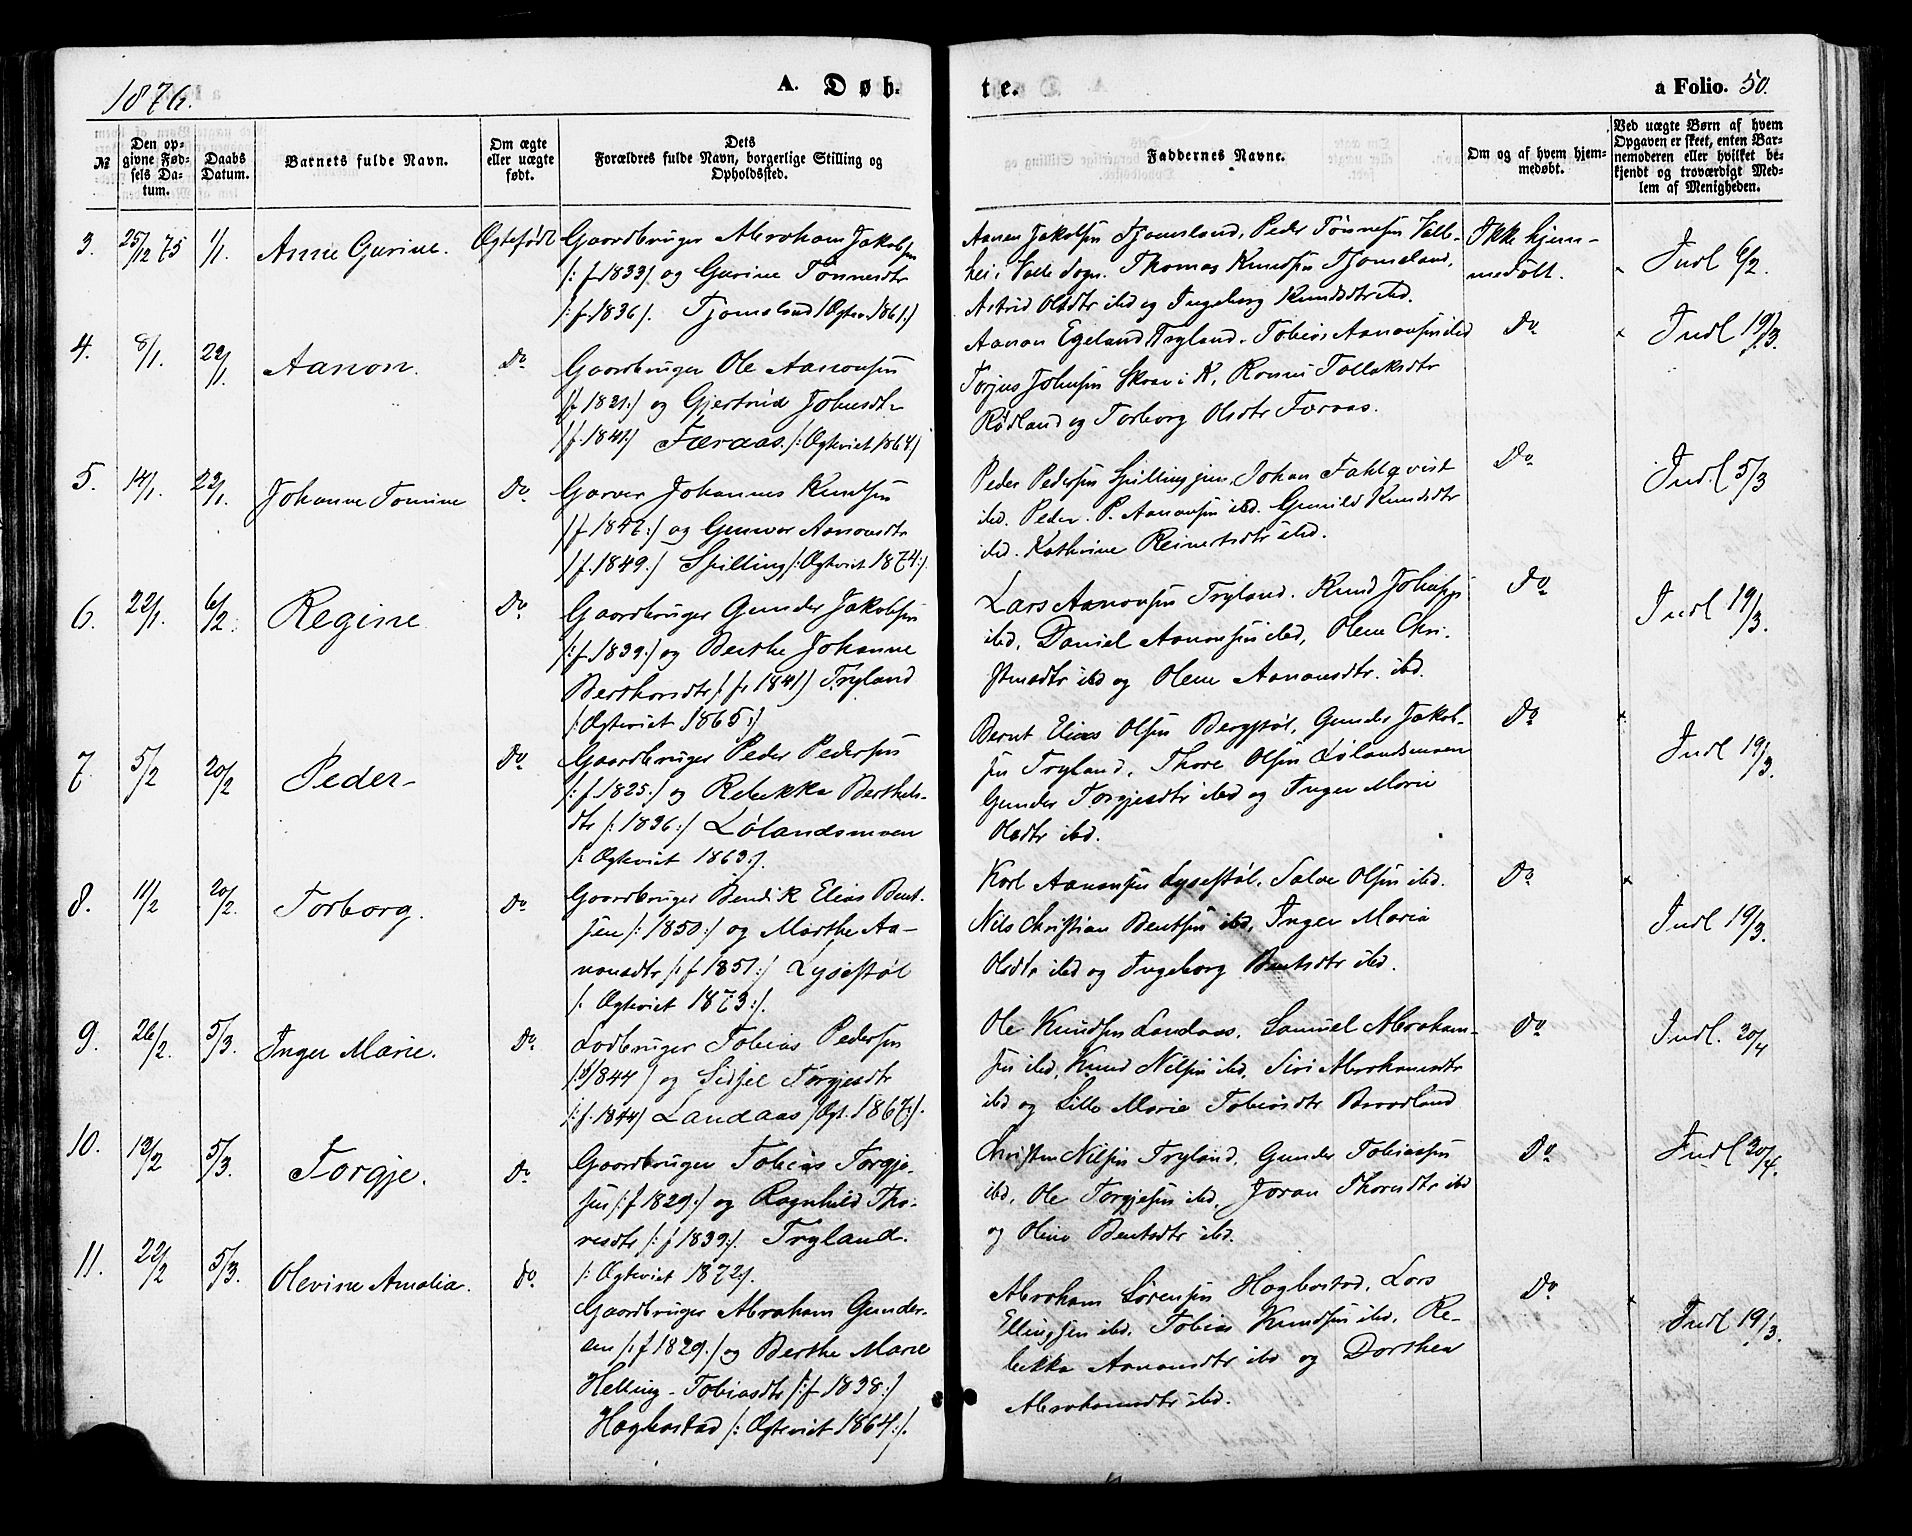 1876.
A. Døb-
te.
a Folio. 50.
№
Den op-
givne Fød-
sels Da-
tum.
Daabs
Datum.
Barnets fulde Navn.
Om ægte
eller uægte
født.
Dets
Forældres fulde Navn, borgerlige Stilling og
Opholdssted.
Faddernes Navne.
Om og af hvem hjem-
medøbt.
Ved uægte Børn af hvem
Opgaven er skeet, enten Bar-
nemoderen eller hvilket be-
kjendt og troværdigt Med-
lem af Menigheden.
3. 25/12 75 1/1 Anne Gurine. Ægtefødt
Gaardbruger Abraham Jakobsen
/: f 1833/ og Gurine Tønnesdtr
/: f. 1836/. Tjomsland /Ægtev. 1861:/
Aanon Jakobsen Tjomsland, Peder Tønnesen Valle-
hei i Valle Sogn. Thomas Knudsen Tjomsland,
Astrid Olsdtr ibd og Ingeborg Knudsdtr ibd.
Ikke hjem-
medøbt.
Indl 6/2.
4. 8/1. 22/1. Aanon. Do
Gaardbruger Ole Aanonsen
/f 1821:/ og Gjertrud Johnsdtr
/f. 1841:/ Færaas. /: Ægteviet 1864/
Aanon Egeland Tryland. Tobias Aanonsen ibd
Torjus Johnsen Skov i K, Ronni Tollaksdtr
Rødland og Torborg Olsdtr Færaas.
Do
Indl 19/3.
5. 14/1. 23/1. Johanne Tomine Do
Garver Johannes Knudsen
/f 1847:/ og Gunvor Aanonsdtr
/f. 1849:/ Spilling /: Ægteviet 1874:/.
Peder Pedersen Spilling jun, Johan Fahlqvist
ibd. Peder. P. Aanonsen ibd. Gunild Knudsdtr
ibd. Kathrine Reinertsdtr ibd.
Do
Indl 5/3
6. 22/1. 6/2. Regine Do
Gaardbruger Gunder Jakobsen
/: f 1839:/ og Berthe Johanne
Berthorsdtr /: f. 1841/ Tryland
/: Ægteviet 1865:/
Lars Aanonsen Tryland. Knud Johnsen
ibd, Daniel Aanonsen ibd, Olene Chri-
stensdtr ibd og Olene Aanonsdtr. ibd.
Do
Indl 19/3.
7. 5/2 20/2 Peder- Do
Gaardbruger Peder Pedersen
/: f 1825:/ og Rebekka Berthels-
dtr /: 1836:/ Lølandsmoen
/: Ægteviet 1863:/.
Bernt Elias Olsen Bergstøl, Gunder Jakob-
sen Tryland, Thore Olsen Lølandsmoen
Gunder Torgjesdtr ibd og Inger Marie
Olsdtr ibd.
Do
Indl 19/3.
8. 11/2 20/2. Torborg. Do
Gaardbruger Bendik Elias Bent-
sen /: 1850:/ og Marthe Aa-
nonsdtr /: f 1851:/ Lysestøl
/: Ægteviet 1873:/.
Karl Aanonsen Lysestøl, Salve Olsen ibd.
Nils Christian Bentsen ibd, Inger Maria
Olsdtr ibd og Ingeborg Bentsdtr ibd.
Do
Indl 19/3.
9. 26/2. 5/3. Inger Marie. Do
Lodbruger Tobias Pedersen
/: 1844/ og Sidsel Torgjesdtr
/: f. 1844/ Landaas /Ægt. 1867:/.
Ole Knudsen Landaas, Samuel Abraham-
sen ibd, Knud Nilsen ibd, Siri Abrahamsdtr
ibd og Lille Marie Tobiasdtr Braadland
Do
Indl. 30/4
10. 13/2 5/3 Torgje. Do
Gaardbruger Tobias Torgje-
sen /: f 1829:/ og Ragnhild Tho-
resdtr /: f 1839:/. Tryland.
/: Ægteviet 1872:/.
Christen Nilsen Tryland, Gunder Tobiassen
ibd, Ole Torgjesen ibd, Joran Thoresdtr ibd
og Oline Bentsdtr ibd.
Do
Indl 30/4.
11. 22/2 5/3. Olevine Amalia. Do
Gaardbruger Abraham Gunder-
sen /: f 1829:/ og Berthe Marie
Helling-Tobiasdtr /: f 1838:/
Høgbostad /: Ægteviet 1864:/.
Abraham Sørensen Høgbostad, Lars
Ellingsen ibd, Tobias Knudsen ibd, Re-
bekka Aanonsdtr ibd og Dorthea
Abrahamsdtr ibd.
Do
Indl 19/3.